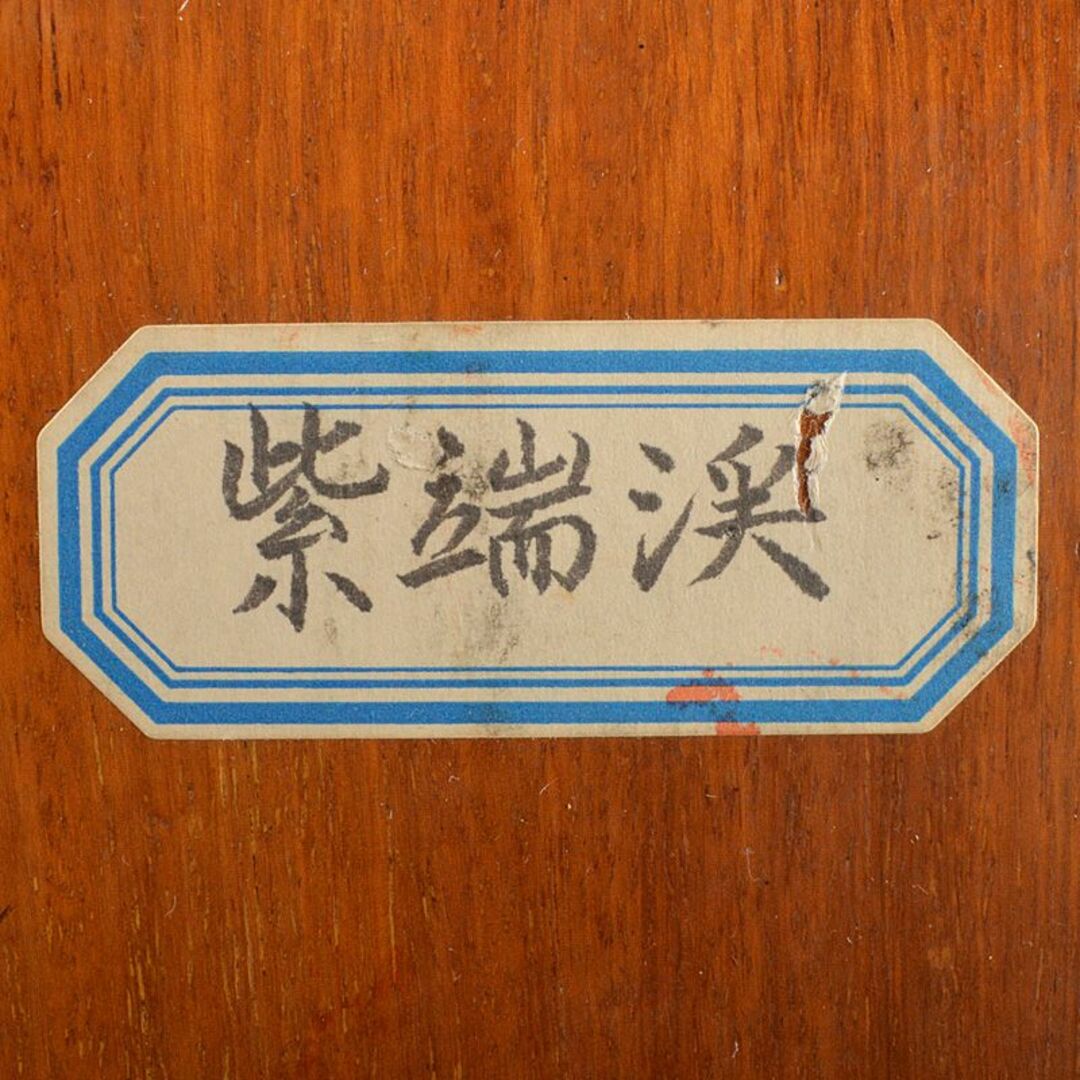 紫端渓